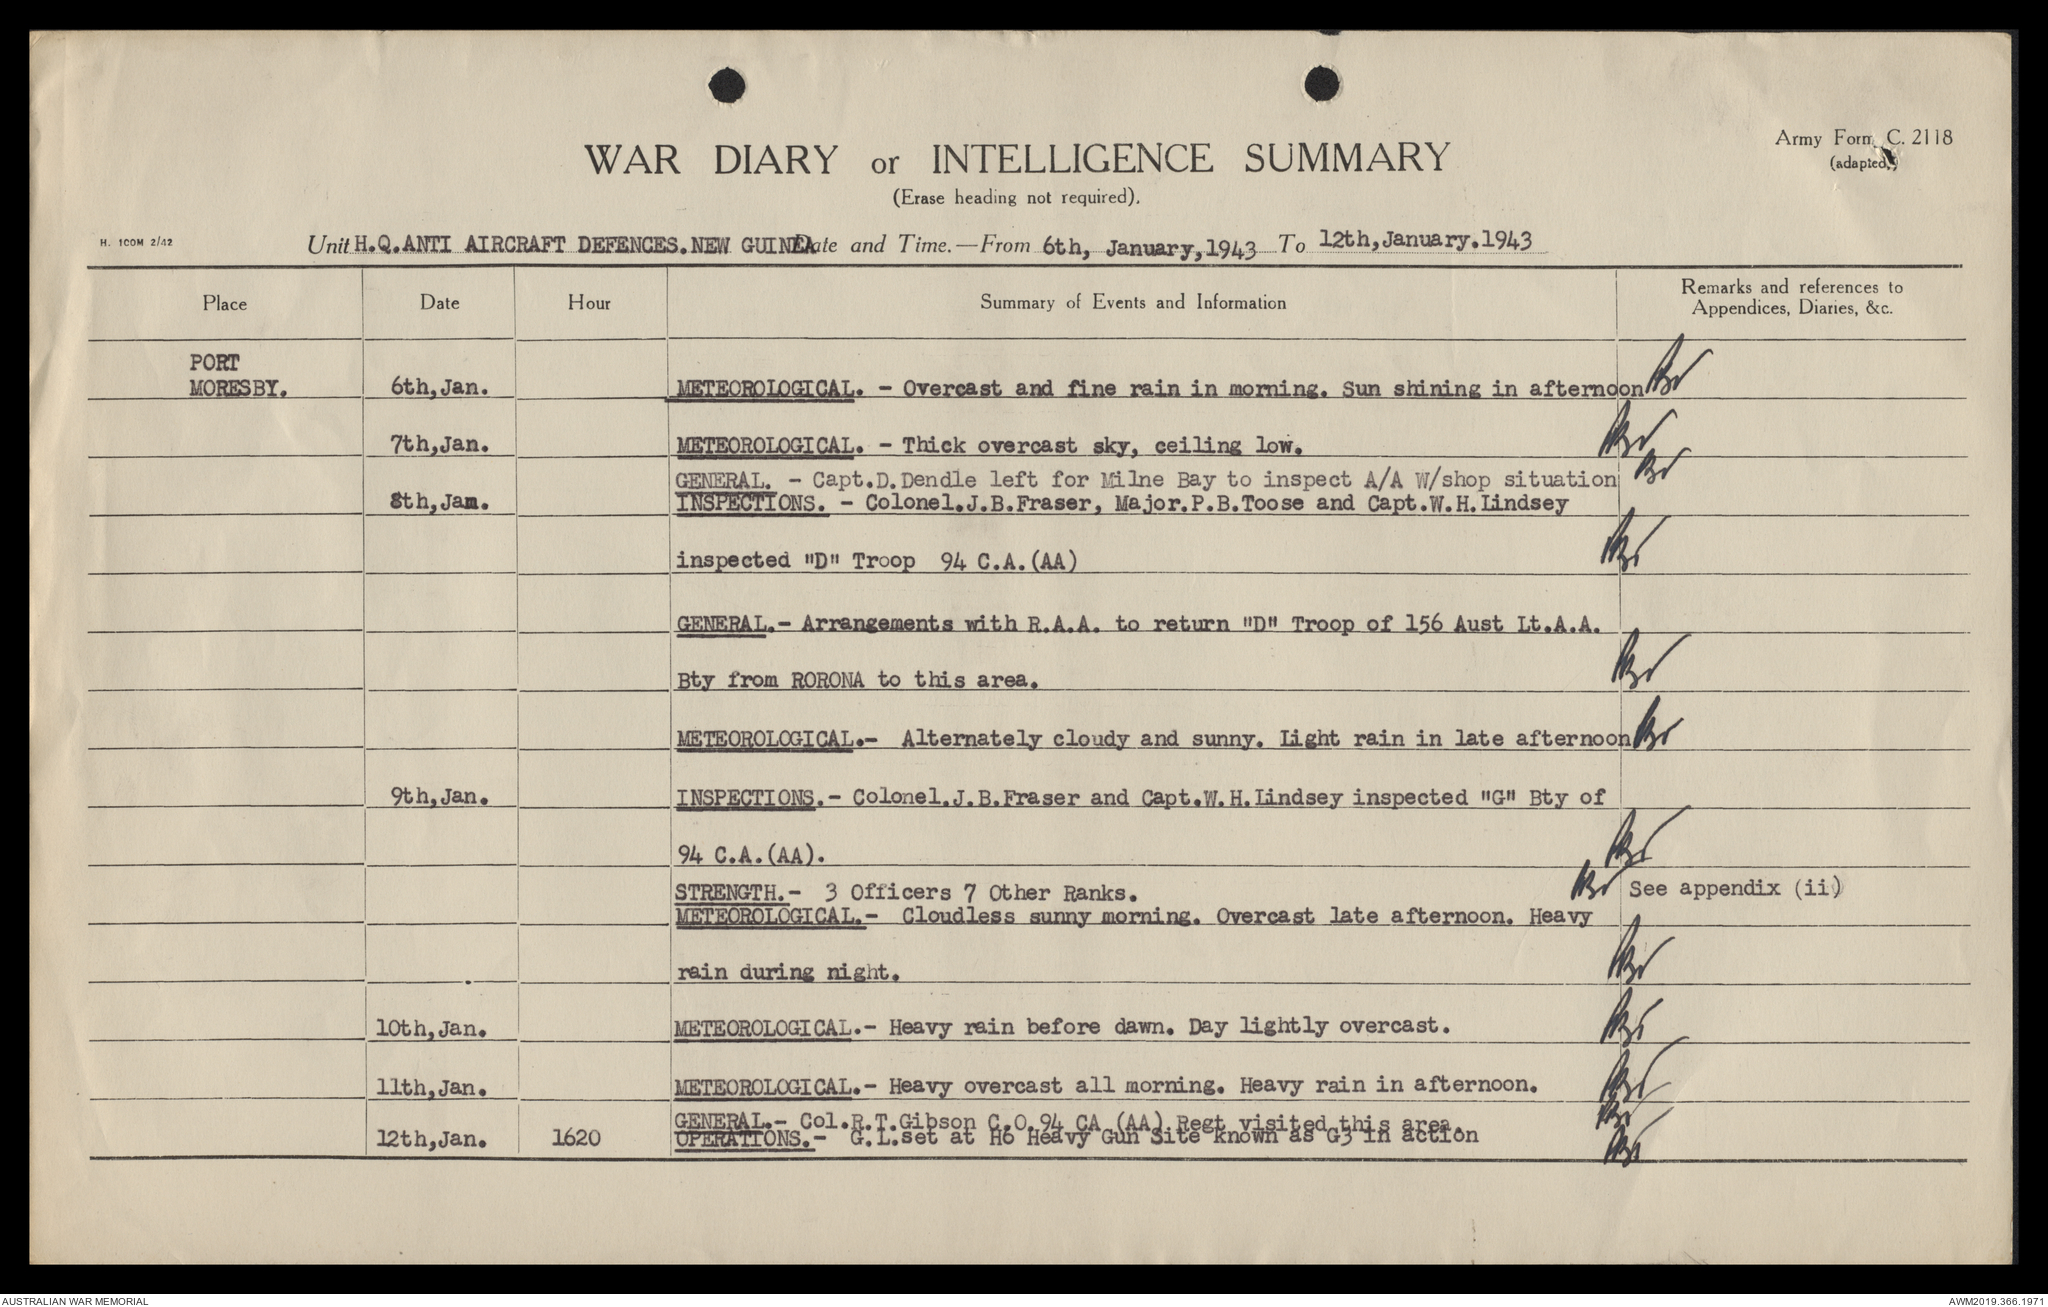 WAR DIARY or INTELLIGENCE SUMMARY
(Erase heading not required).
Army Form C. 2118
(adapted.)
H. 100M 2/42
Unit H.Q.ANTI AIRCRAFT DEFENCES.NEW GUINEA Date and Time.—From 6th, January,1943 To 12th,January.1943
Place Date Hour Summary of Events and Information Remarks and references to
Appendices, Diaries, &c.
PORT
MORESBY. 6th,Jan. METEOROLOGICAL. - Overcast and fine rain in morning. Sun shining in afternoon
7th,Jan. METEOROLOGICAL. - Thick overcast sky, ceiling low.
GENERAL. - Capt.D.Dendle left for Milne Bay to inspect A/A W/shop situation
8th,Jan. INSPECTIONS. - Colonel.J.B.Fraser, Major.P.B.Toose and Capt.W.H.Lindsey
inspected "D" Troop 94 C.A.(AA)
GENERAL.- Arrangements with R.A.A. to return "D" Troop of 156 Aust Lt.A.A.
Bty from RORONA to this area.
METEOROLOGICAL.- Alternately cloudy and sunny. Light rain in late afternoon
9th,Jan. INSPECTIONS.- Colonel.J.B.Fraser and Capt.W.H.Lindsey inspected "G" Bty of
94 C.A.(AA).
STRENGTH.- 3 Officers 7 Other Ranks. See appendix (ii)
METEOROLOGICAL.- Cloudless sunny morning. Overcast late afternoon. Heavy
rain during night.
10th,Jan. METEOROLOGICAL.- Heavy rain before dawn. Day lightly overcast.
11th,Jan. METEOROLOGICAL.- Heavy overcast all morning. Heavy rain in afternoon.
GENERAL.- Col.R.T.Gibson C.O.94 CA (AA) Regt visited this area.
12th,Jan. 1620 OPERATIONS.- G.L.set at H6 Heavy Gun Site known as G3 in action
AUSTRALIAN WAR MEMORIAL AWM2019.366.1971